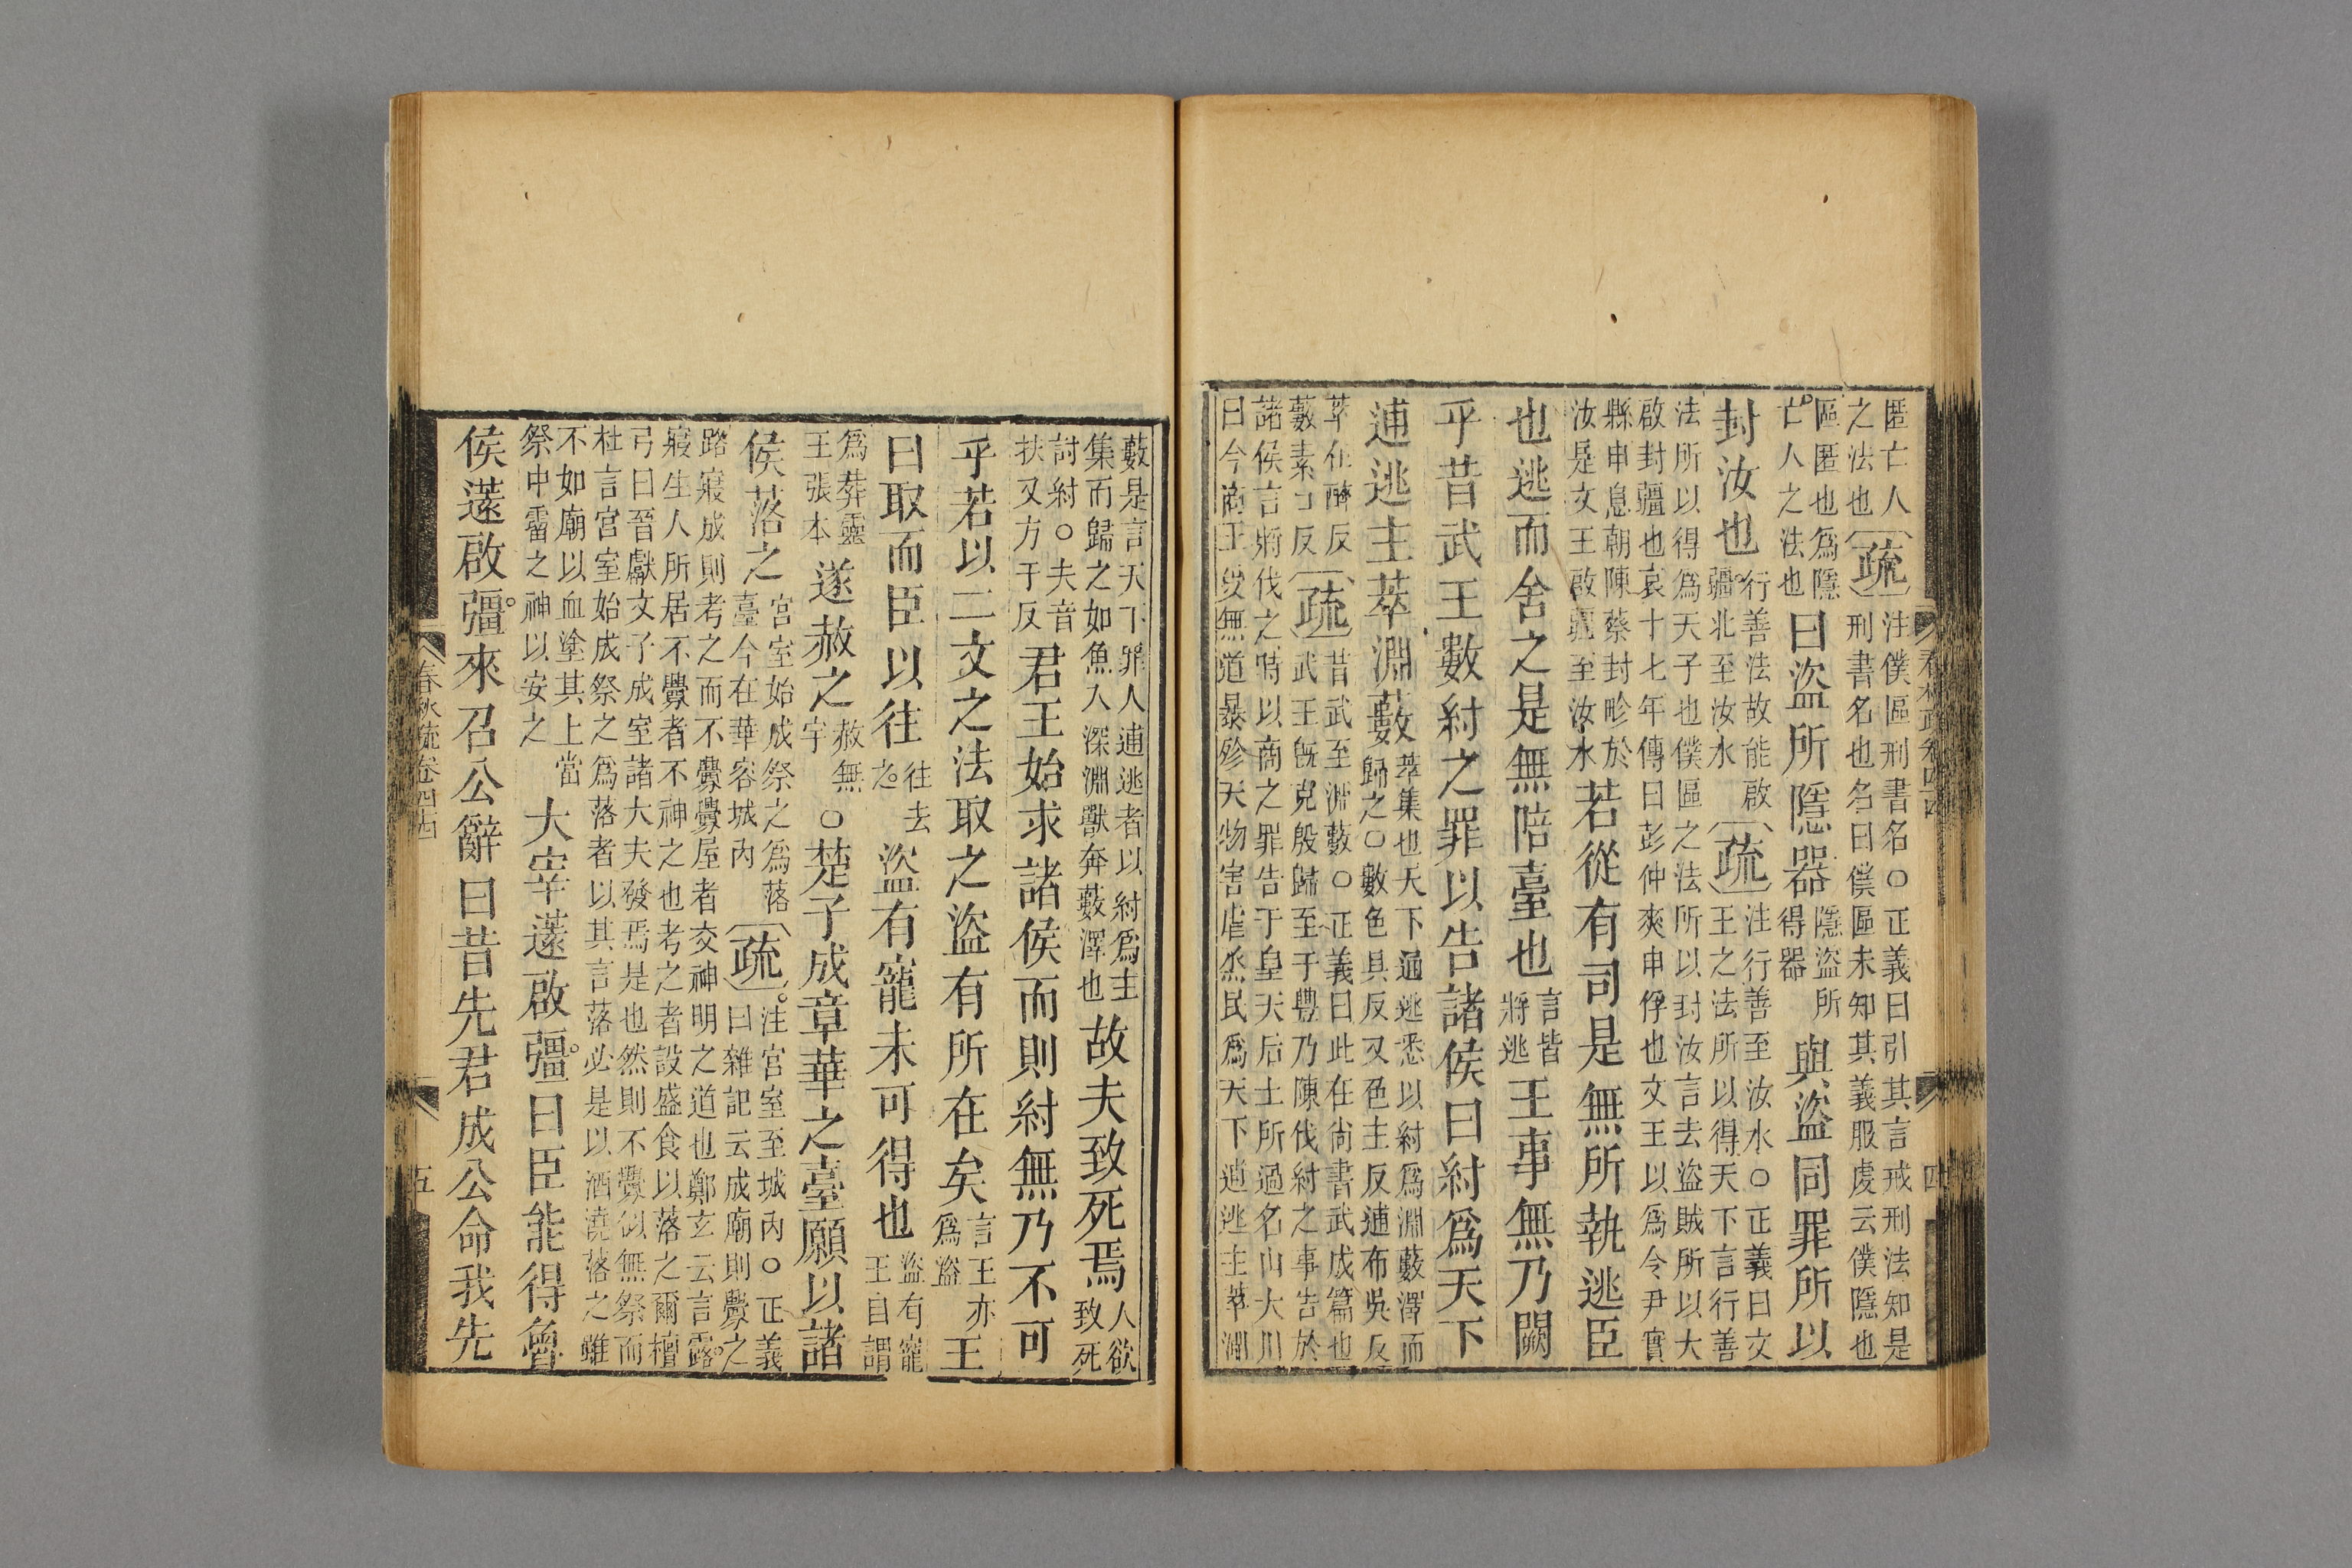 匿亡人
之法也
疏
注僕區刑書名○正義曰引其言戒刑法知是
刑書名也名曰僕區未知其義服虔云僕隱也
區匿也爲隱
亡人之法也
曰盜所隱器
隱盜所
得器
與盜同罪所以
封汝也
行善法故能啟
疆北至汝水
疏
注行善至汝水○正義曰文
王之法所以得天下言行善
法所以得爲天子也僕區之法所以封汝言去盜賊所以大
啟封疆也哀十七年傳曰彭仲爽申俘也文王以爲令尹實
縣申息朝陳蔡封畛於
汝是文王啟疆至汝水
若從有司是無所執逃臣
也逃而舍之是無陪臺也
言皆
將逃
王事無乃闕
乎昔武王數紂之罪以告諸侯曰紂爲天下
逋逃主萃淵藪
萃集也天下逋逃悉以紂爲淵藪澤而
歸之○數色具反又色主反逋布吳反
萃在醉反
藪素口反
疏
昔武至淵藪○正義曰此在尚書武成篇也
武王既克殷歸至于豐乃陳伐紂之事告於
諸侯言將伐之時以商之罪告于皇天后土所過名山大川
曰今商王受無道暴殄天物害虐烝民爲天下逋逃主萃淵
四
藪是言天下罪人逋逃者以紂爲主
集而歸之如魚入深淵獸奔藪澤也
故夫致死焉
人欲
致死
討紂○夫音
扶又方于反
君王始求諸侯而則紂無乃不可
乎若以二文之法取之盜有所在矣
言王亦
爲盜
王
曰取而臣以往
往去
之
盜有寵未可得也
盜有寵
王自謂
爲葬靈
王張本
遂赦之
赦無
宇
○楚子成章華之臺願以諸
侯落之
宮室始成祭之爲落
臺今在華容城內
疏
注宮室至城內○正義
曰雜記云成廟則釁之
路寢成則考之而不釁釁屋者交神明之道也鄭玄云言露
寢生人所居不釁者不神之也考之者設盛食以落之爾檀
弓曰晉獻文子成室諸大夫發焉是也然則不釁似無祭而
杜言宮室始成祭之爲落者以其言落必是以酒澆落之雖
不如廟以血塗其上當
祭中霤之神以安之
大宰薳啟彊曰臣能得魯
侯薳啟彊來召公辭曰昔先君成公命我先
春秋疏卷四十四
五